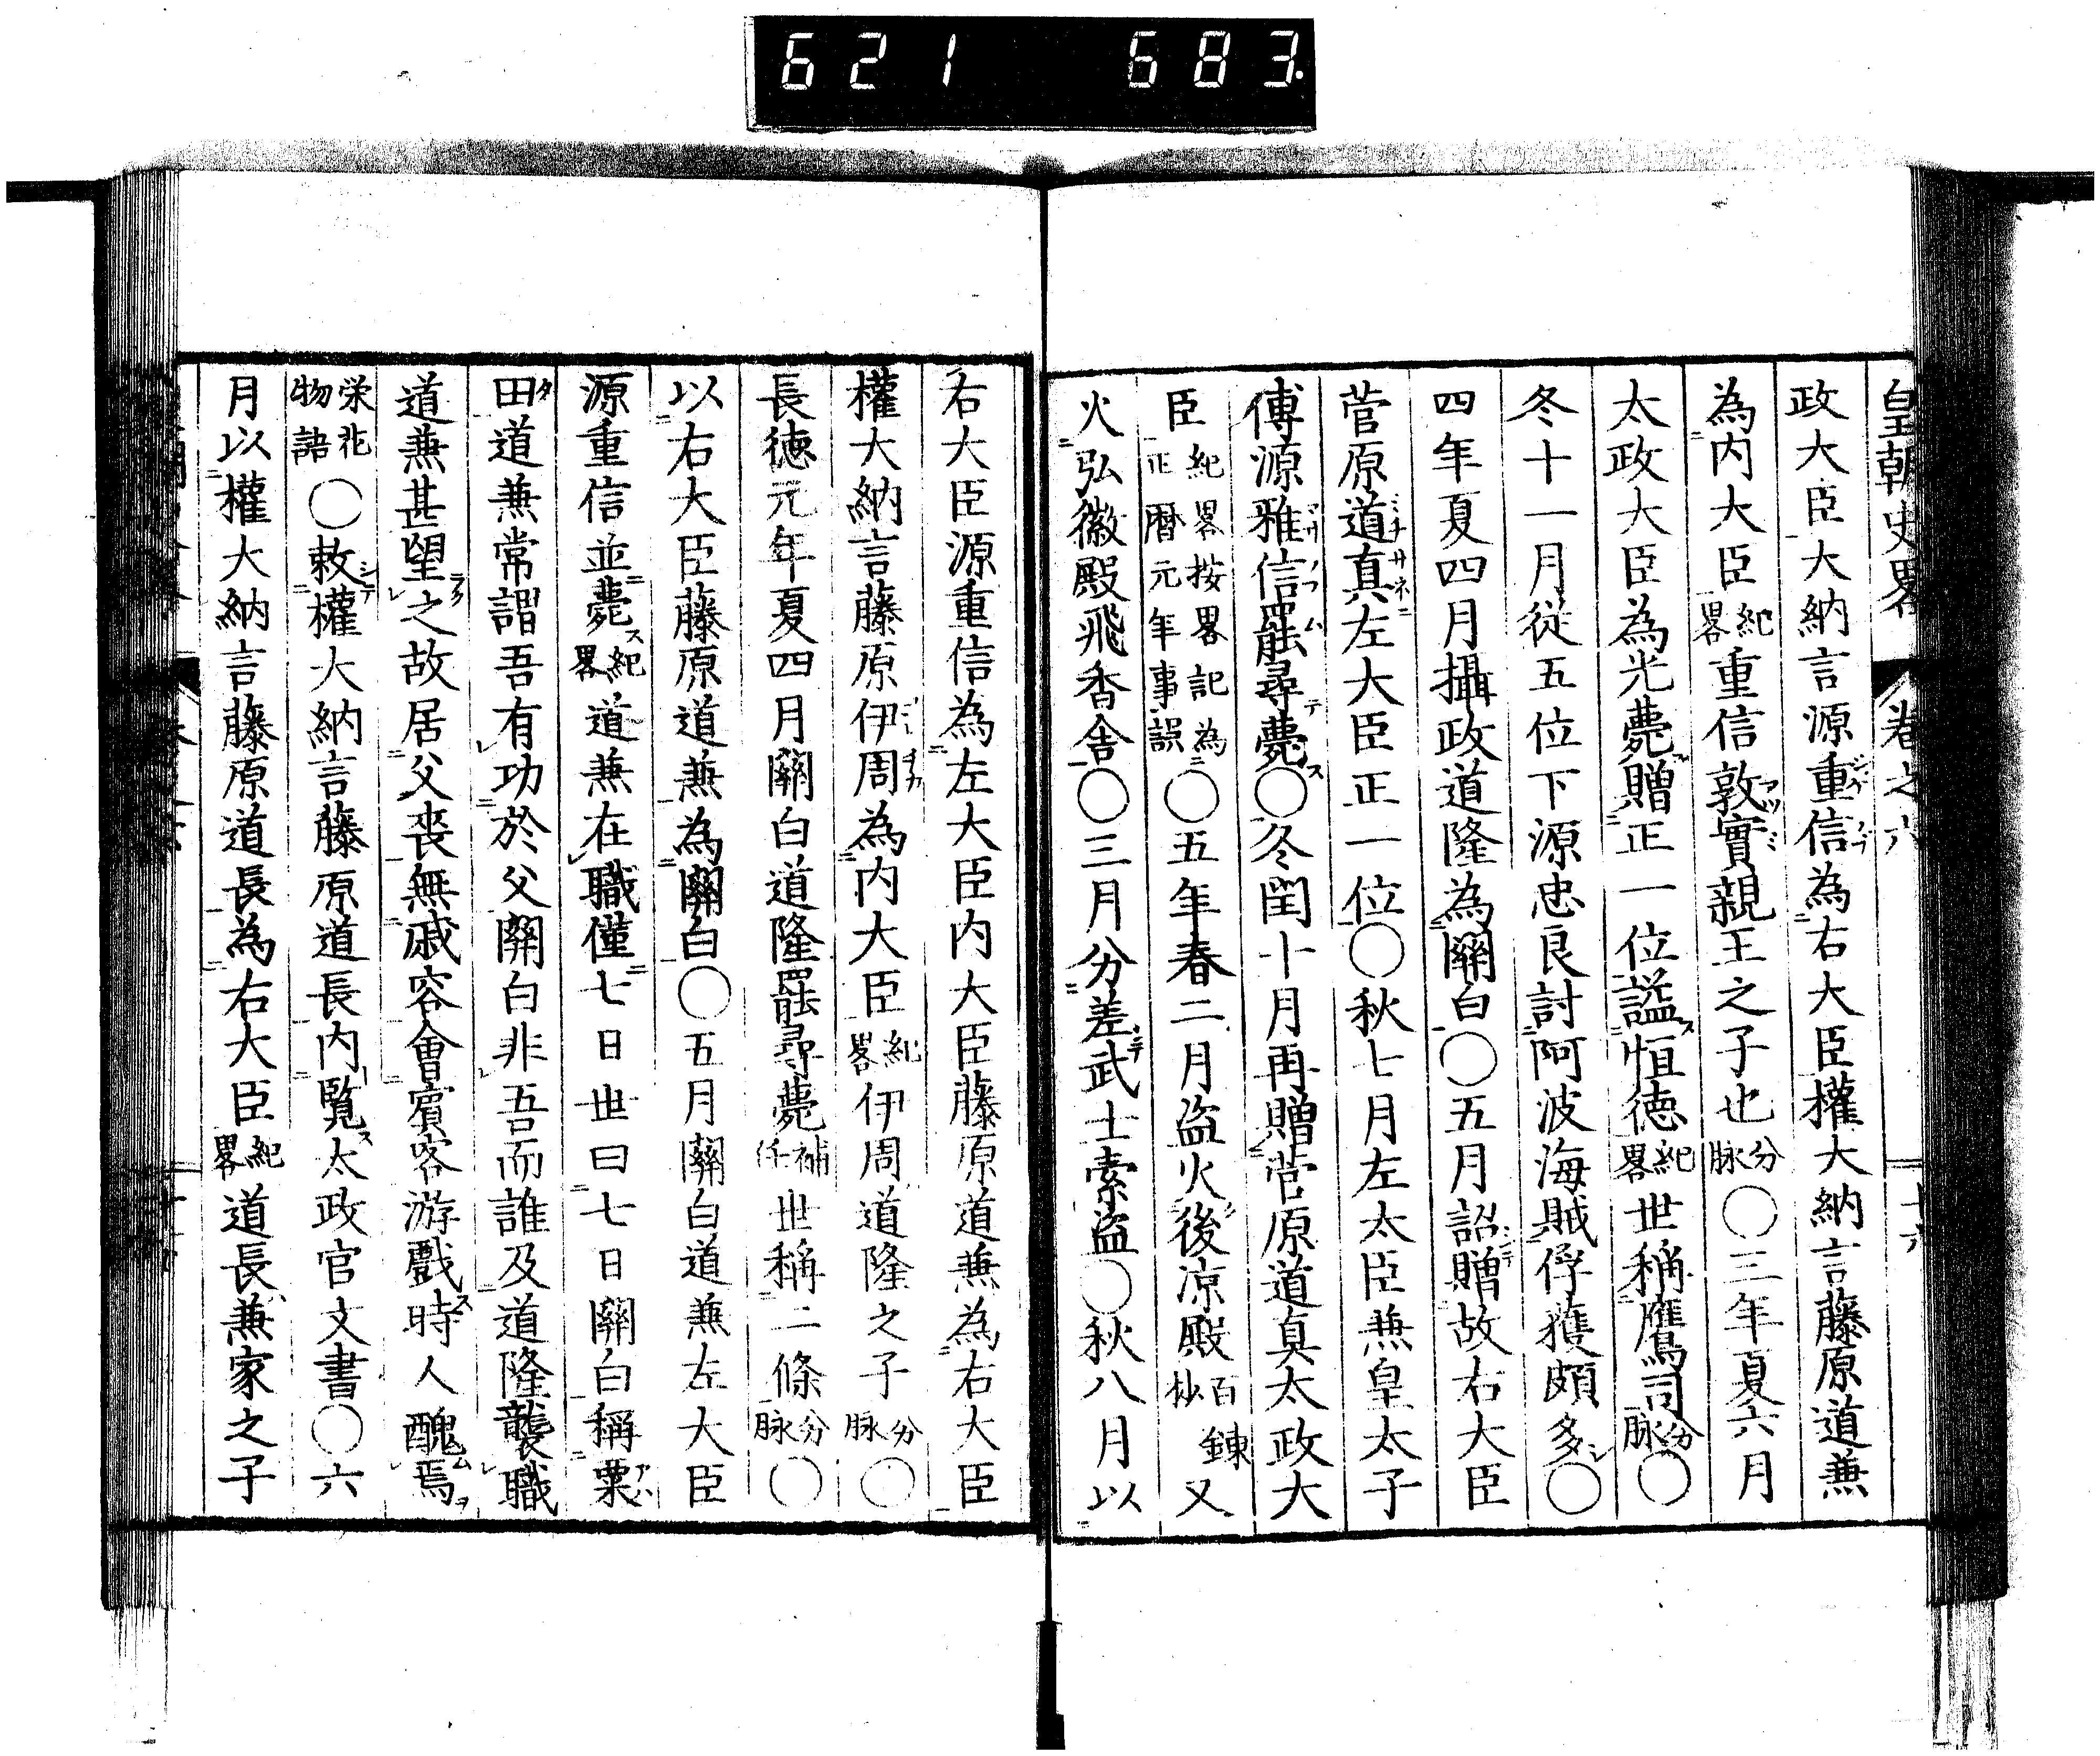 621 683.
皇朝史畧 卷之六
政大臣大納言源重信為右大臣權大納言藤原道兼
為内大臣紀畧重信敦實親王之子也分脉〇三年夏六月
太政大臣為光薨贈正一位謚恒徳紀畧世稱鷹司分脉〇
冬十一月從五位下源忠良討阿波海賊俘獲頗多〇
四年夏四月攝政道隆為關白〇五月詔贈故右大臣
菅原道真左大臣正一位〇秋七月左太臣兼皇太子
傅源雅信罷尋薨〇冬閏十月再贈菅原道真太政大
臣紀畧按畧記為正曆元年事誤〇五年春二月盗火後凉殿百鍊抄又
火弘徽殿飛香舎〇三月分差武士索盗〇秋八月以
右大臣源重信為左大臣内大臣藤原道兼為右大臣
權大納言藤原伊周為内大臣紀畧伊周道隆之子分脉〇
長徳元年夏四月關白道隆罷尋薨補任世稱二條分脉〇
以右大臣藤原道兼為關白〇五月關白道兼左大臣
源重信並薨紀畧道兼在職僅七日世曰七日關白稱粟
田道兼常謂吾有功於父關白非吾而誰及道隆襲職
道兼甚望之故居父喪無戚容會賓客游戲時人醜焉
栄花物語〇敕權大納言藤原道長内覧太政官文書〇六
月以權大納言藤原道長為右大臣紀畧道長兼家之子